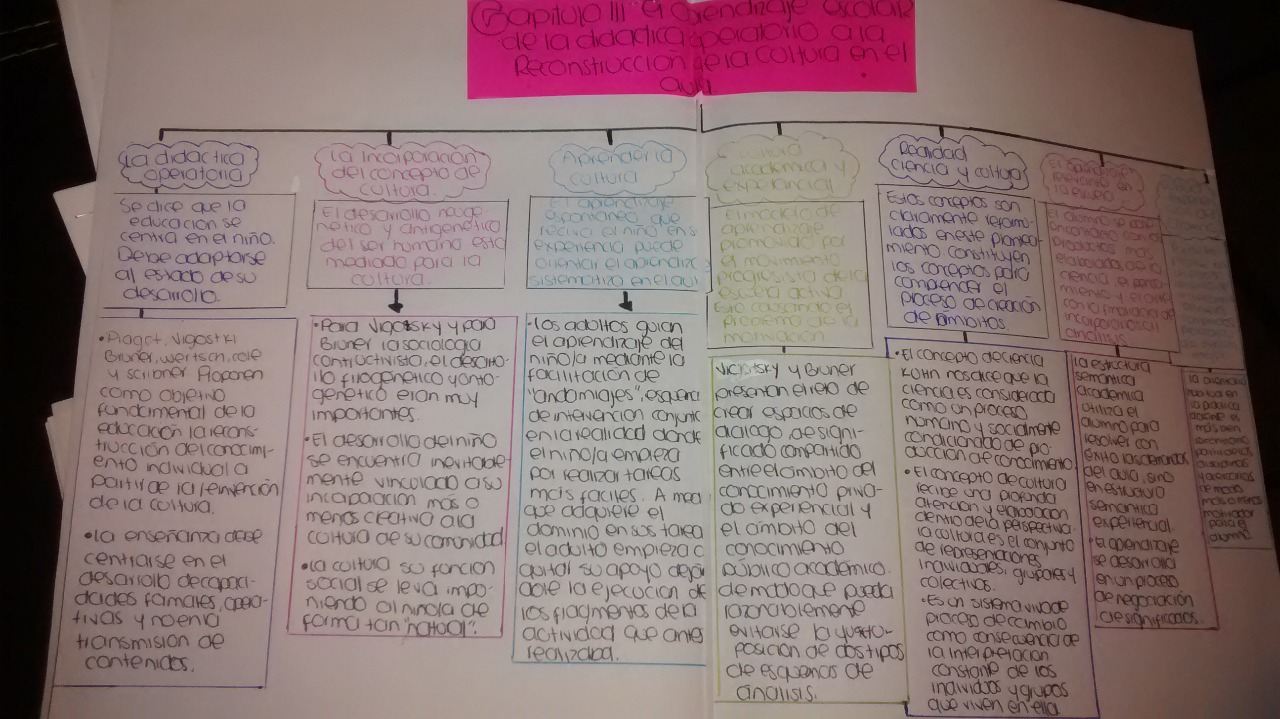 Capitulo III El aprendizaje escolar
de la didactica operatorio a la
Reconstrucción de la cultura en el
aula.
La didactica
operatoria
Se dice que la
educación se
centra en el niño.
Debe adaptarse
al estado de su
desarrollo.
• Piaget, Vigostki
Bruner, wertsch, cole
y scribner Proponen
como objetivo
fundamental de la
educación la recons-
trucción del conocimi-
ento individual a
partir de la reinvención
de la cultura.
• la enseñanza debe
centrarse en el
desarrollo de capaci-
dades formales, opera-
tivas y no en la
transmisión de
contenidos.
La Incorporación
del concepto de
cultura.
El desarrollo
del ser humano esta
mediado para la
cultura.
• Para Vigotsky y para
Bruner la sociología
contructivista, el desarro-
llo filogenético y onto-
genético eran muy
importantes.
• El desarrollo del niño
se encuentra inevitable-
mente vinculado a su
incorporación más o
menos creativa a la
cultura de su comunidad
• la cultura su función
social se le va impo-
niendo al niño/a de
forma tan "natural".
Aprender la
cultura
El aprendizaje
espontáneo que
recive al niño en s
experiencia puede
orientar el aprendiz
sistematizo en el aul
• los adultos guian
el aprendizaje del
niño/a mediante la
facilitación de
"andamiajes", esquema
de intervención conjunta
en la realidad donde
el niño/a empieza
por realizar tareas
más faciles. A med
que adquiere el
dominio en sus tarea
el adulto empieza a
quitar su apoyo dejan
dole la ejecución de
los fragmentos de la
actividad que antes
realizaba.
academica y
experiancial
El modelo de
aprendizaje
promovido por
el movimiento
progresista de la
escuela activa
Esto causando el
problema de la
motivación
Vicotsky y Bruner
presentan el reto de
crear espacios de
dialogo, de signi-
ficado compartido
entre el ambito del
conocimiento priva-
do experiencial y
el ámbito del
conocimiento
público académico.
de modo que pueda
razonablemente
evitarse la yuxta-
posición de dos tipos
de esquemas de
análisis.
Realidad
ciencia y cultura
Estos conceptos son
claramente reformo-
lados en este plantea-
miento constituyen
los conceptos para
comprender el
proceso de creación
de ámbitos.
• El concepto de ciencia
Kuhn nos dice que la
ciencia es considerada
como un proceso
humano y socialmente
condicionado de pro
ducción de conocimiento
• El concepto de cultura
recibe una profunda
atención y elaboración
dentro de la perspectiva.
la cultura es el conjunto
de representaciones
individuales, grupales y
colectivas.
• Es un sistema vivo de
proceso de cambio
como consecuencia de
la interpretación
constante de los
individuos y grupos
que viven en ella
El aprendizaje
relevante en
la escuela
El alumno se debe
encontrarse con los
productos más
elaborados de la
ciencia, el pensa-
miento y el arte
incorporarlos al
analisis
la estructura
semántica
académica
utiliza el
alumno para
resolver con
éxito las demandas
del aula, sino
en estructura
semantica
experiencial.
• El aprendizaje
se desarrolla
en un proceso
de negociación
de significados.